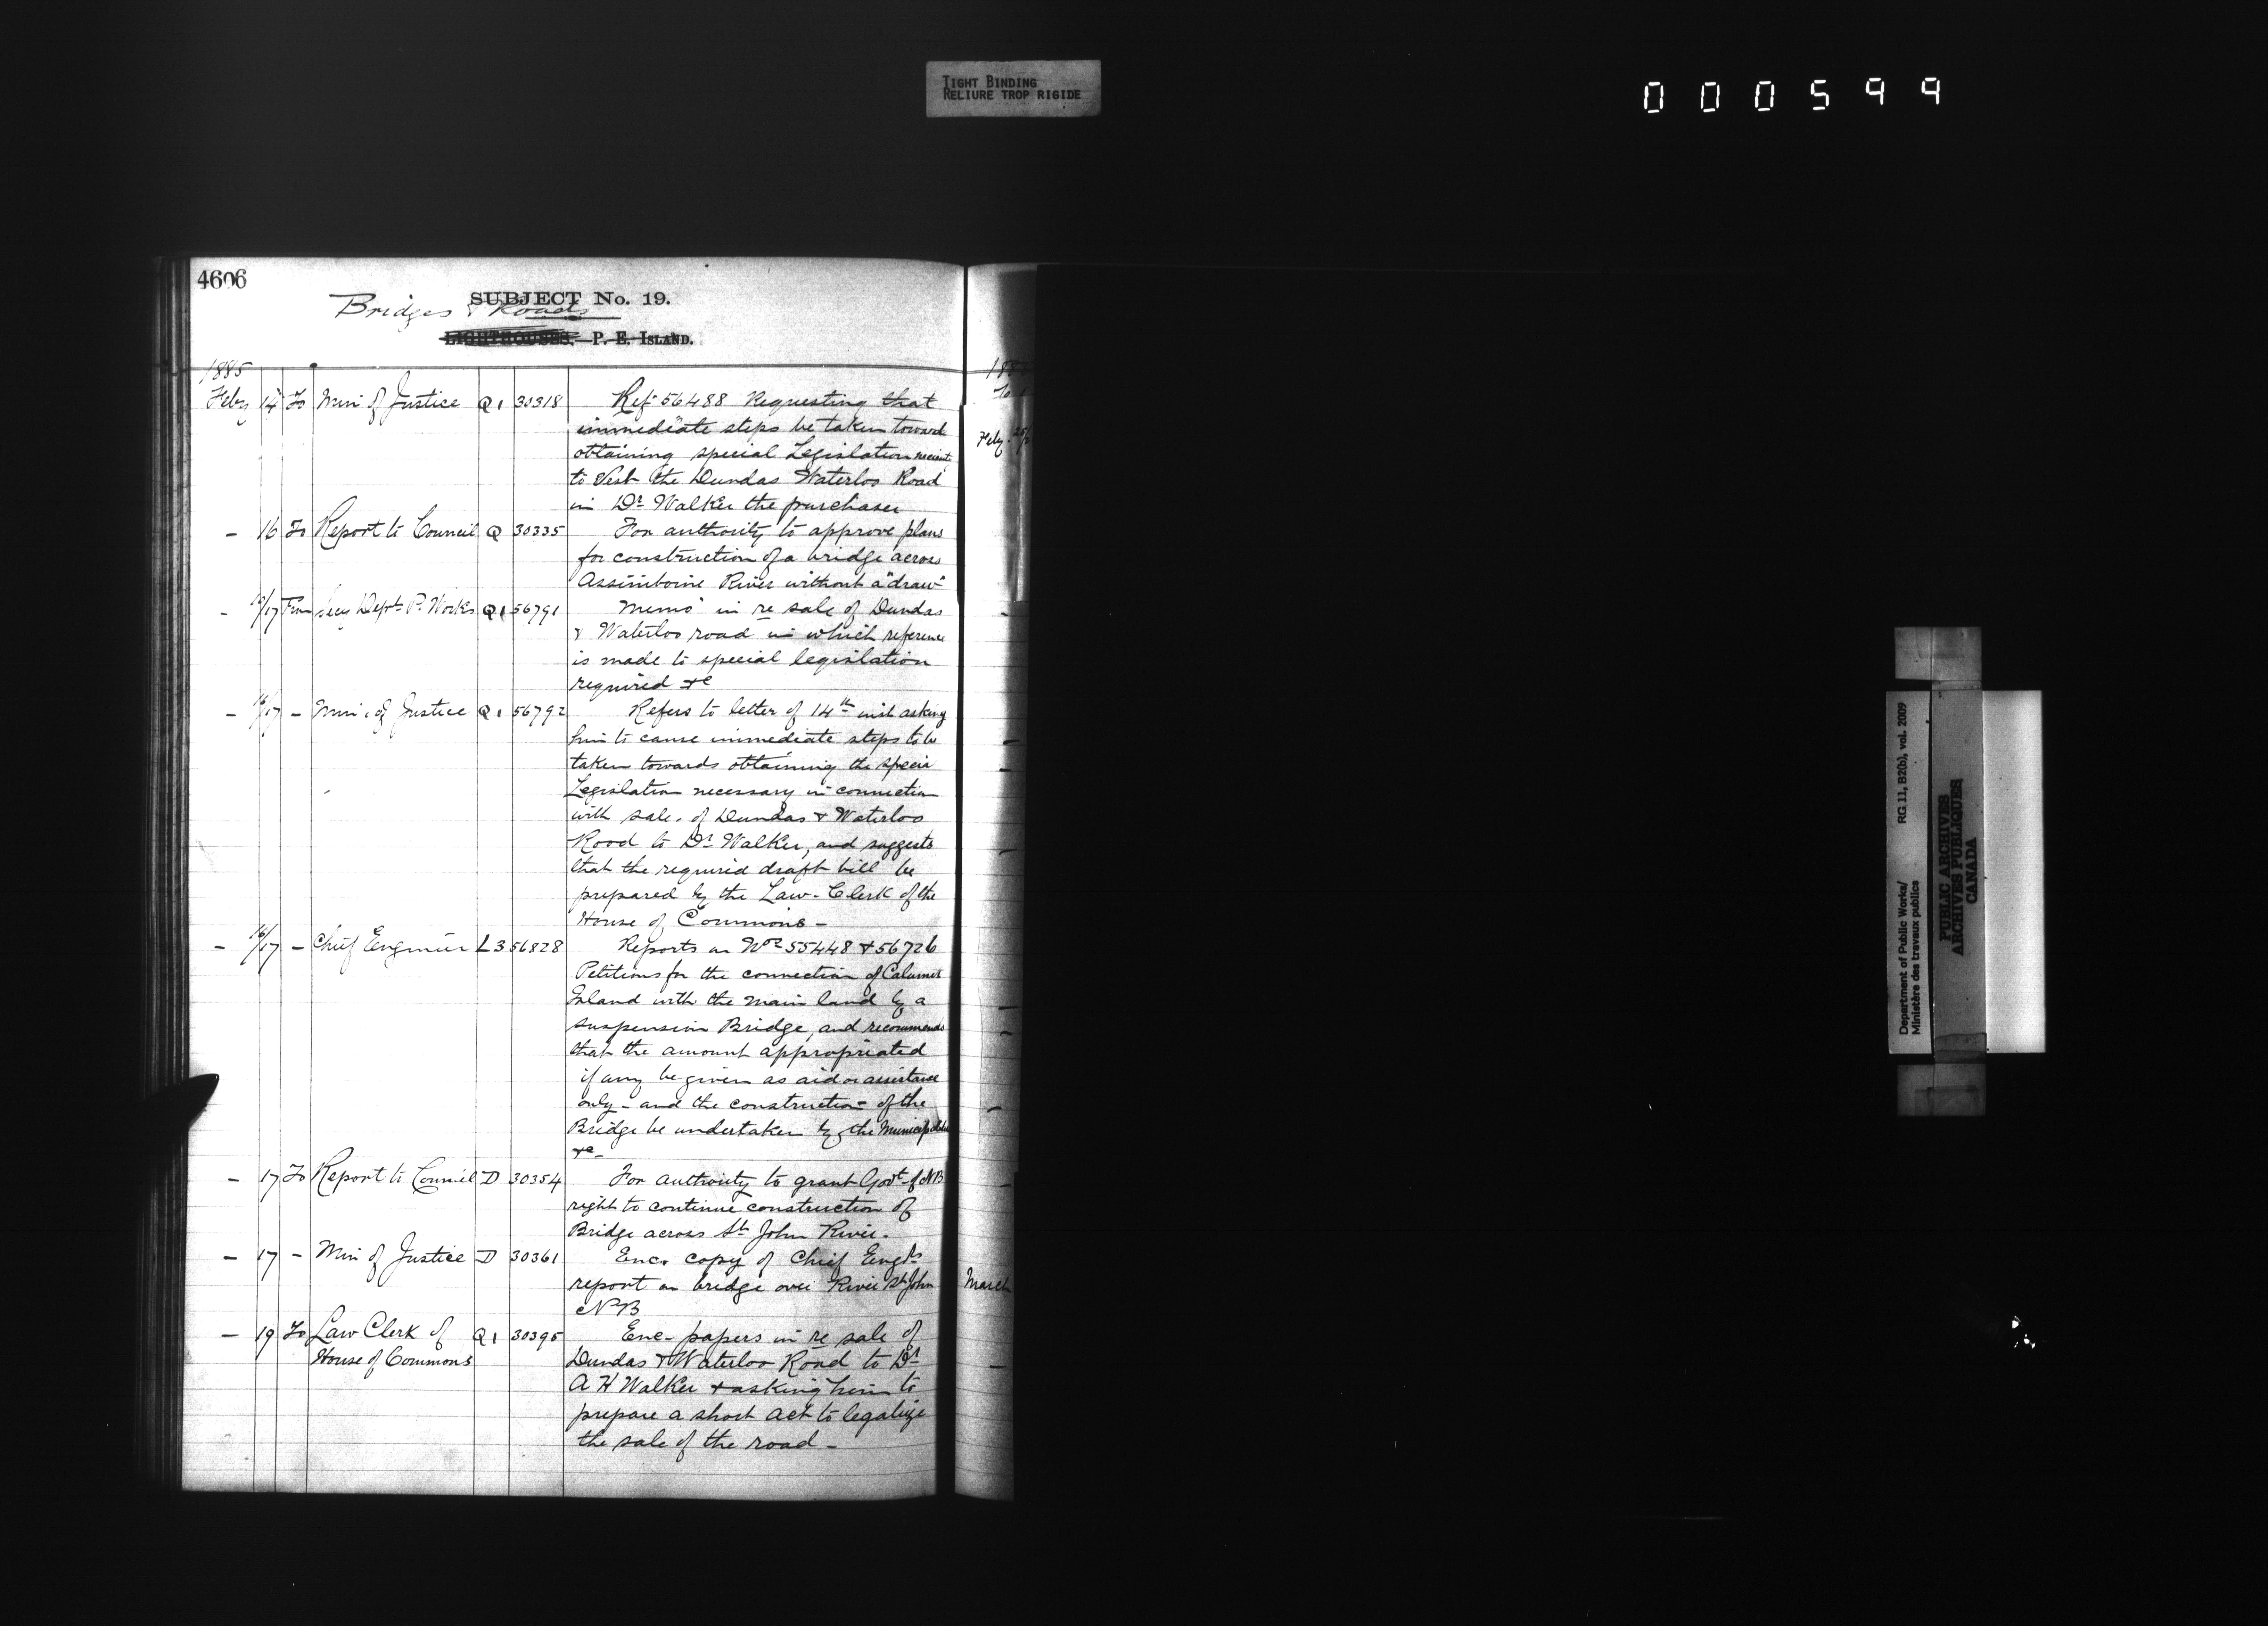 TIGHT BINDING
RELIURE TROP RIGIDE
000599
4606
SUBJECT No. 19.
Bridges & Roads
LIGHTHOUSES.—P. E. ISLAND.
1885
Feby 14 To Min of Justice Q1 30318 Ref 56488 Requesting that
immediate steps be taken toward
obtaining special Legislation
to Vest the Dundas Waterloo Road
in Dr Walker the purchaser
– 16 To Report to Council Q 30335 For authority to approve plans
for construction of a bridge across
Assiniboine River without a "draw"
– /17 From Secy Dept P. Works Q1 56791 Memo in re sale of Dundas
& Waterloo road in which reference
is made to special legislation
required &c
– /17 – Min. of Justice Q1 56792 Refers to letter of 14th inst asking
him to cause immediate steps to be
taken towards obtaining the
Legislation necessary in connection
with sale of Dundas & Waterloo
Road to Dr Walker, and suggests
that the required draft bill be
prepared by the Law-Clerk of the
House of Commons –
– 16/17 – Chief Engineer L3 56828 Reports on Nos 55448 & 56726
Petitions for the connection of Calumet
Island with the main land by a
suspension Bridge, and recommends
that the amount appropriated
if any be given as aid or assistance
only – and the construction of the
Bridge be undertaken by the
&c –
– 17 To Report to Council D 30354 For authority to grant Govt of NB
right to continue construction of
Bridge across St John River.
– 17 – Min of Justice D 30361 Enc. copy of Chief Engrs
report on bridge over River St John
NB
– 19 To Law Clerk of Q1 30395 Enc – papers in re sale of
House of Commons Dundas & Waterloo Road to Dr
A H Walker & asking him to
prepare a short act to legalize
the sale of the road –
Feby
March
Department of Public Works/ RG 11, B2(b), vol. 2009
Ministère des travaux publics
PUBLIC ARCHIVES
ARCHIVES PUBLIQUES
CANADA